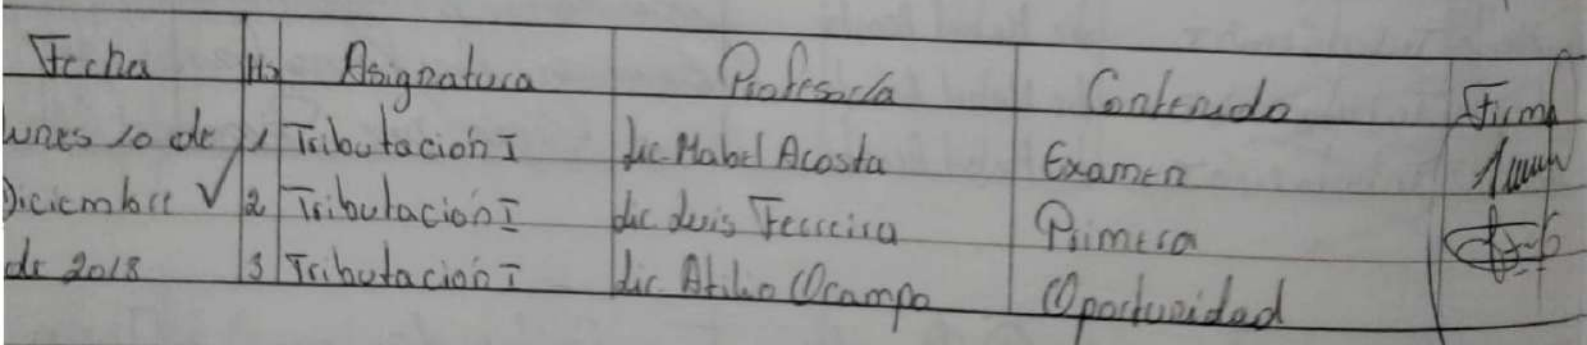 Fecha Hs Asignatura Profesor/a Contenido Firma
Lunes 10 de 1 Tributación I Lic. Mabel Acosta Examen
Diciembre ✓ 2 Tributación I Lic. Luis Ferreira Primera
de 2018 3 Tributación I Lic. Atilio Ocampo Oportunidad